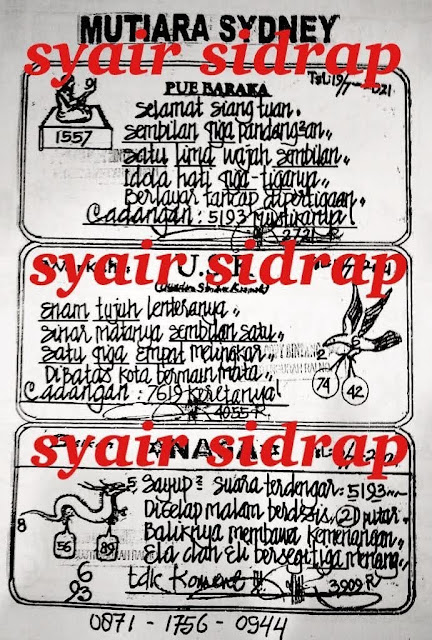 MUTIARA SYDNEY
syair sidrap
PUE BARAKA
1557
Selamat siang tuan
sembilan tiga pandang2an
satu lima wajah sembilan
idola hati tiga-tiganya
Berlayar tancap dipertigaan
Cadangan : 5193 mustikanya
2721-R
syair sidrap
U.S.R
enam tujuh lenteranya
sinar matanya sembilan satu
satu tiga empat melingkar
DiBatas kota bermain mata
Cadangan : 7619 keretanya
4055-R
2
74
42
syair sidrap
NAGA
5
8
56
89
6
93
Sayup2 suara terdengar : 5193
Digelap malam berdzis 21 putar
Baliknya membawa kemenangan
Ela dan Eli bersegitiga menang
tdk Koment !!!
3909 R
0871 - 1756 - 0944